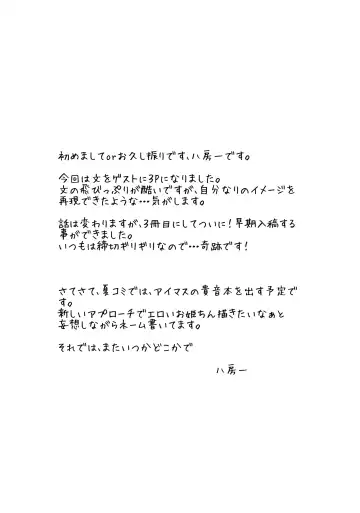 初めましてorお久し振りです、八房一です。
今回は文をゲストに3Pになりました。
文の飛びっぷりが酷いですが、自分なりのイメージを
再現できたような…気がします。
話は変わりますが、3冊目にしてついに！早期入稿する
事ができました。
いつもは締切ギリギリなので…奇跡です！
さてさて、夏コミでは、アイマスの貴音本を出す予定で
す。
新しいアプローチでエロいお姫ちん描きたいなぁと
妄想しながらネーム書いてます。
それでは、またいつかどこかで
八房一